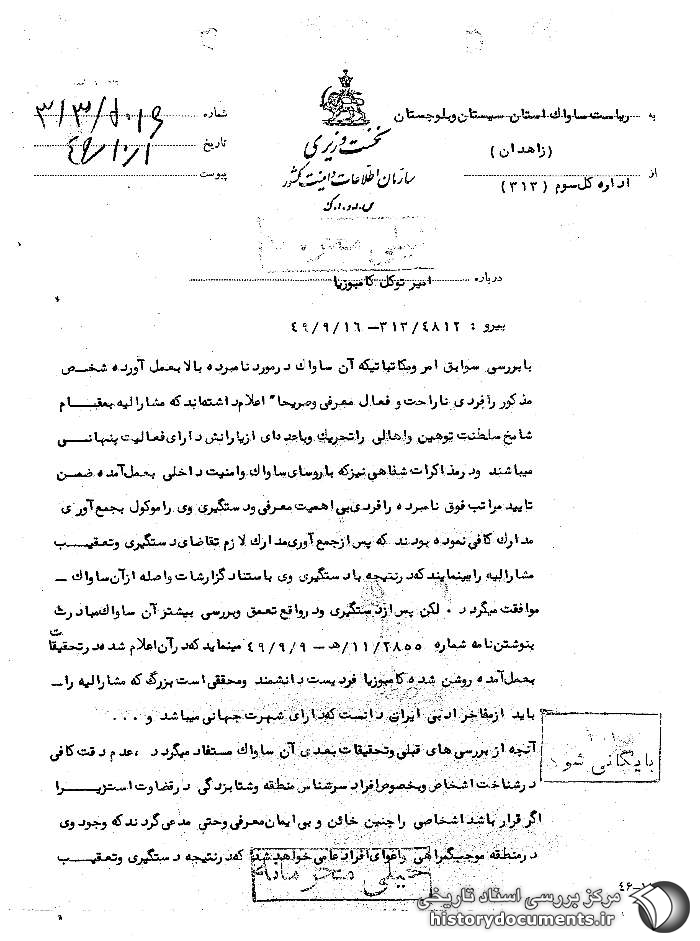 به ریاست ساواک استان سیستان وبلوچستان
(زاهدان)
از اداره کل سوم (۳۱۳)
نخست وزیری
سازمان اطلاعات و امنیت کشور
س.ا.و.ا.ک
شماره
تاریخ ۴۹/۱۰/۱
پیوست
خیلی محرمانه
درباره امیر توکل کامبوزیا
پیرو : ۳۱۳/۴۸۱۲ – ۴۹/۹/۱۶
بابررسی سوابق امر ومکاتباتیکه آن ساواک درمورد نامبرده بالا بعمل آورده شخص
مذکور رافردی ناراحت و فعال معرفی وصریحا" اعلام داشته‌اند که مشارالیه بمقـــام
شامخ سلطنت توهین واهالی راتحریک وباعده‌ای ازیارانش دارای فعالیت پنهانـــی
میباشند ودرمذاکرات شفاهی نیزکه باروسای ساواک وامنیت داخلی بعمل‌آمده ضمن
تایید مراتب فوق نامبرده رافردی‌بی‌اهمیت معرفی ودستگیری وی راموکول بجمع‌آوری
مدارک کافی نموده بودند که پس‌ازجمع‌آوری‌مدارک لازم تقاضای دستگیری وتعقیـــب
مشارالیه رابنمایند که درنتیجه بادستگیری وی باستناد گزارشات واصله ازآن ساواک ـ
موافقت میگردد . لکن پس ازدستگیری ودرواقع تعمق وبررسی بیشتر آن ساواک مبادرت
بنوشتن‌نامه شماره ۱۱/۲۸۵۵/هـ – ۴۹/۹/۹ مینماید که درآن‌اعلام شده درتحقیقات
بعمل‌آمده روشن شده کامبوزیا فردیست دانشمند ومحققی است بزرگ که مشارالیه راـ
باید ازمفاخر ادبی ایران دانست که دارای شهرت جهانی میباشد و ...
آنچه از بررسی های قبلی وتحقیقات بعدی آن ساواک مستفاد میگردد ، عدم دقت کافی
درشناخت اشخاص وبخصوص افراد سرشناس منطقه وشتابزدگی درقضاوت است زیـــرا
اگر قرار باشد اشخاصی راچنین خائن و بی ایمان معرفی وحتی مدعی گردند که وجود وی
درمنطقه موجب گمراهی واغوای افراد عامی خواهد شد که درنتیجه دستگیری وتعقیـــب
بایگانی شود
خیلی محرمانه
د-۴۶
مرکز بررسی اسناد تاریخی
historydocuments.ir